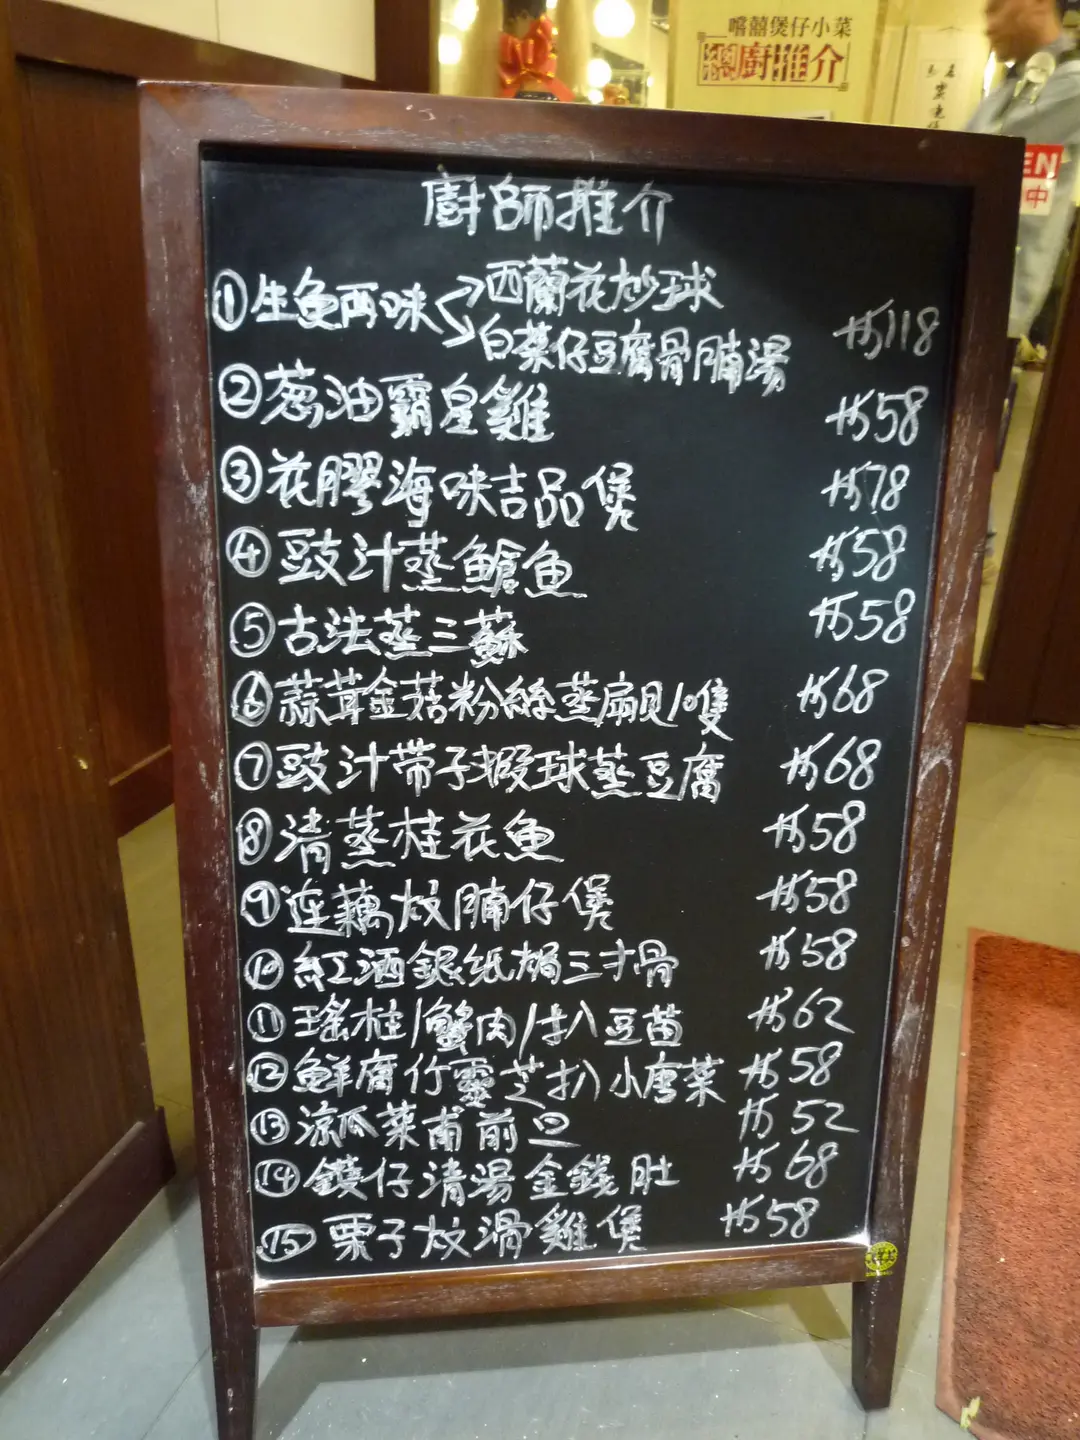 嚐囍煲仔小菜
廚推介
EN
中
廚師推介
①生魚両味 西蘭花炒球
白菜仔豆腐骨腩湯 $118
②葱油霸皇雞 $58
③花膠海味吉品煲 $78
④豉汁蒸鱠魚 $58
⑤古法蒸三蘇 $58
⑥蒜茸金菇粉絲蒸扇貝10隻 $68
⑦豉汁带子蝦球蒸豆腐 $68
⑧清蒸桂花魚 $58
⑨连藕炆腩仔煲 $58
⑩紅酒銀纸焗三才骨 $58
⑪瑤柱/蟹肉/扒豆苗 $62
⑫鮮腐竹靈芝扒小唐菜 $58
⑬涼瓜菜甫前旦 $52
⑭鏌仔清湯金錢肚 $68
⑮栗子炆滑雞煲 $58